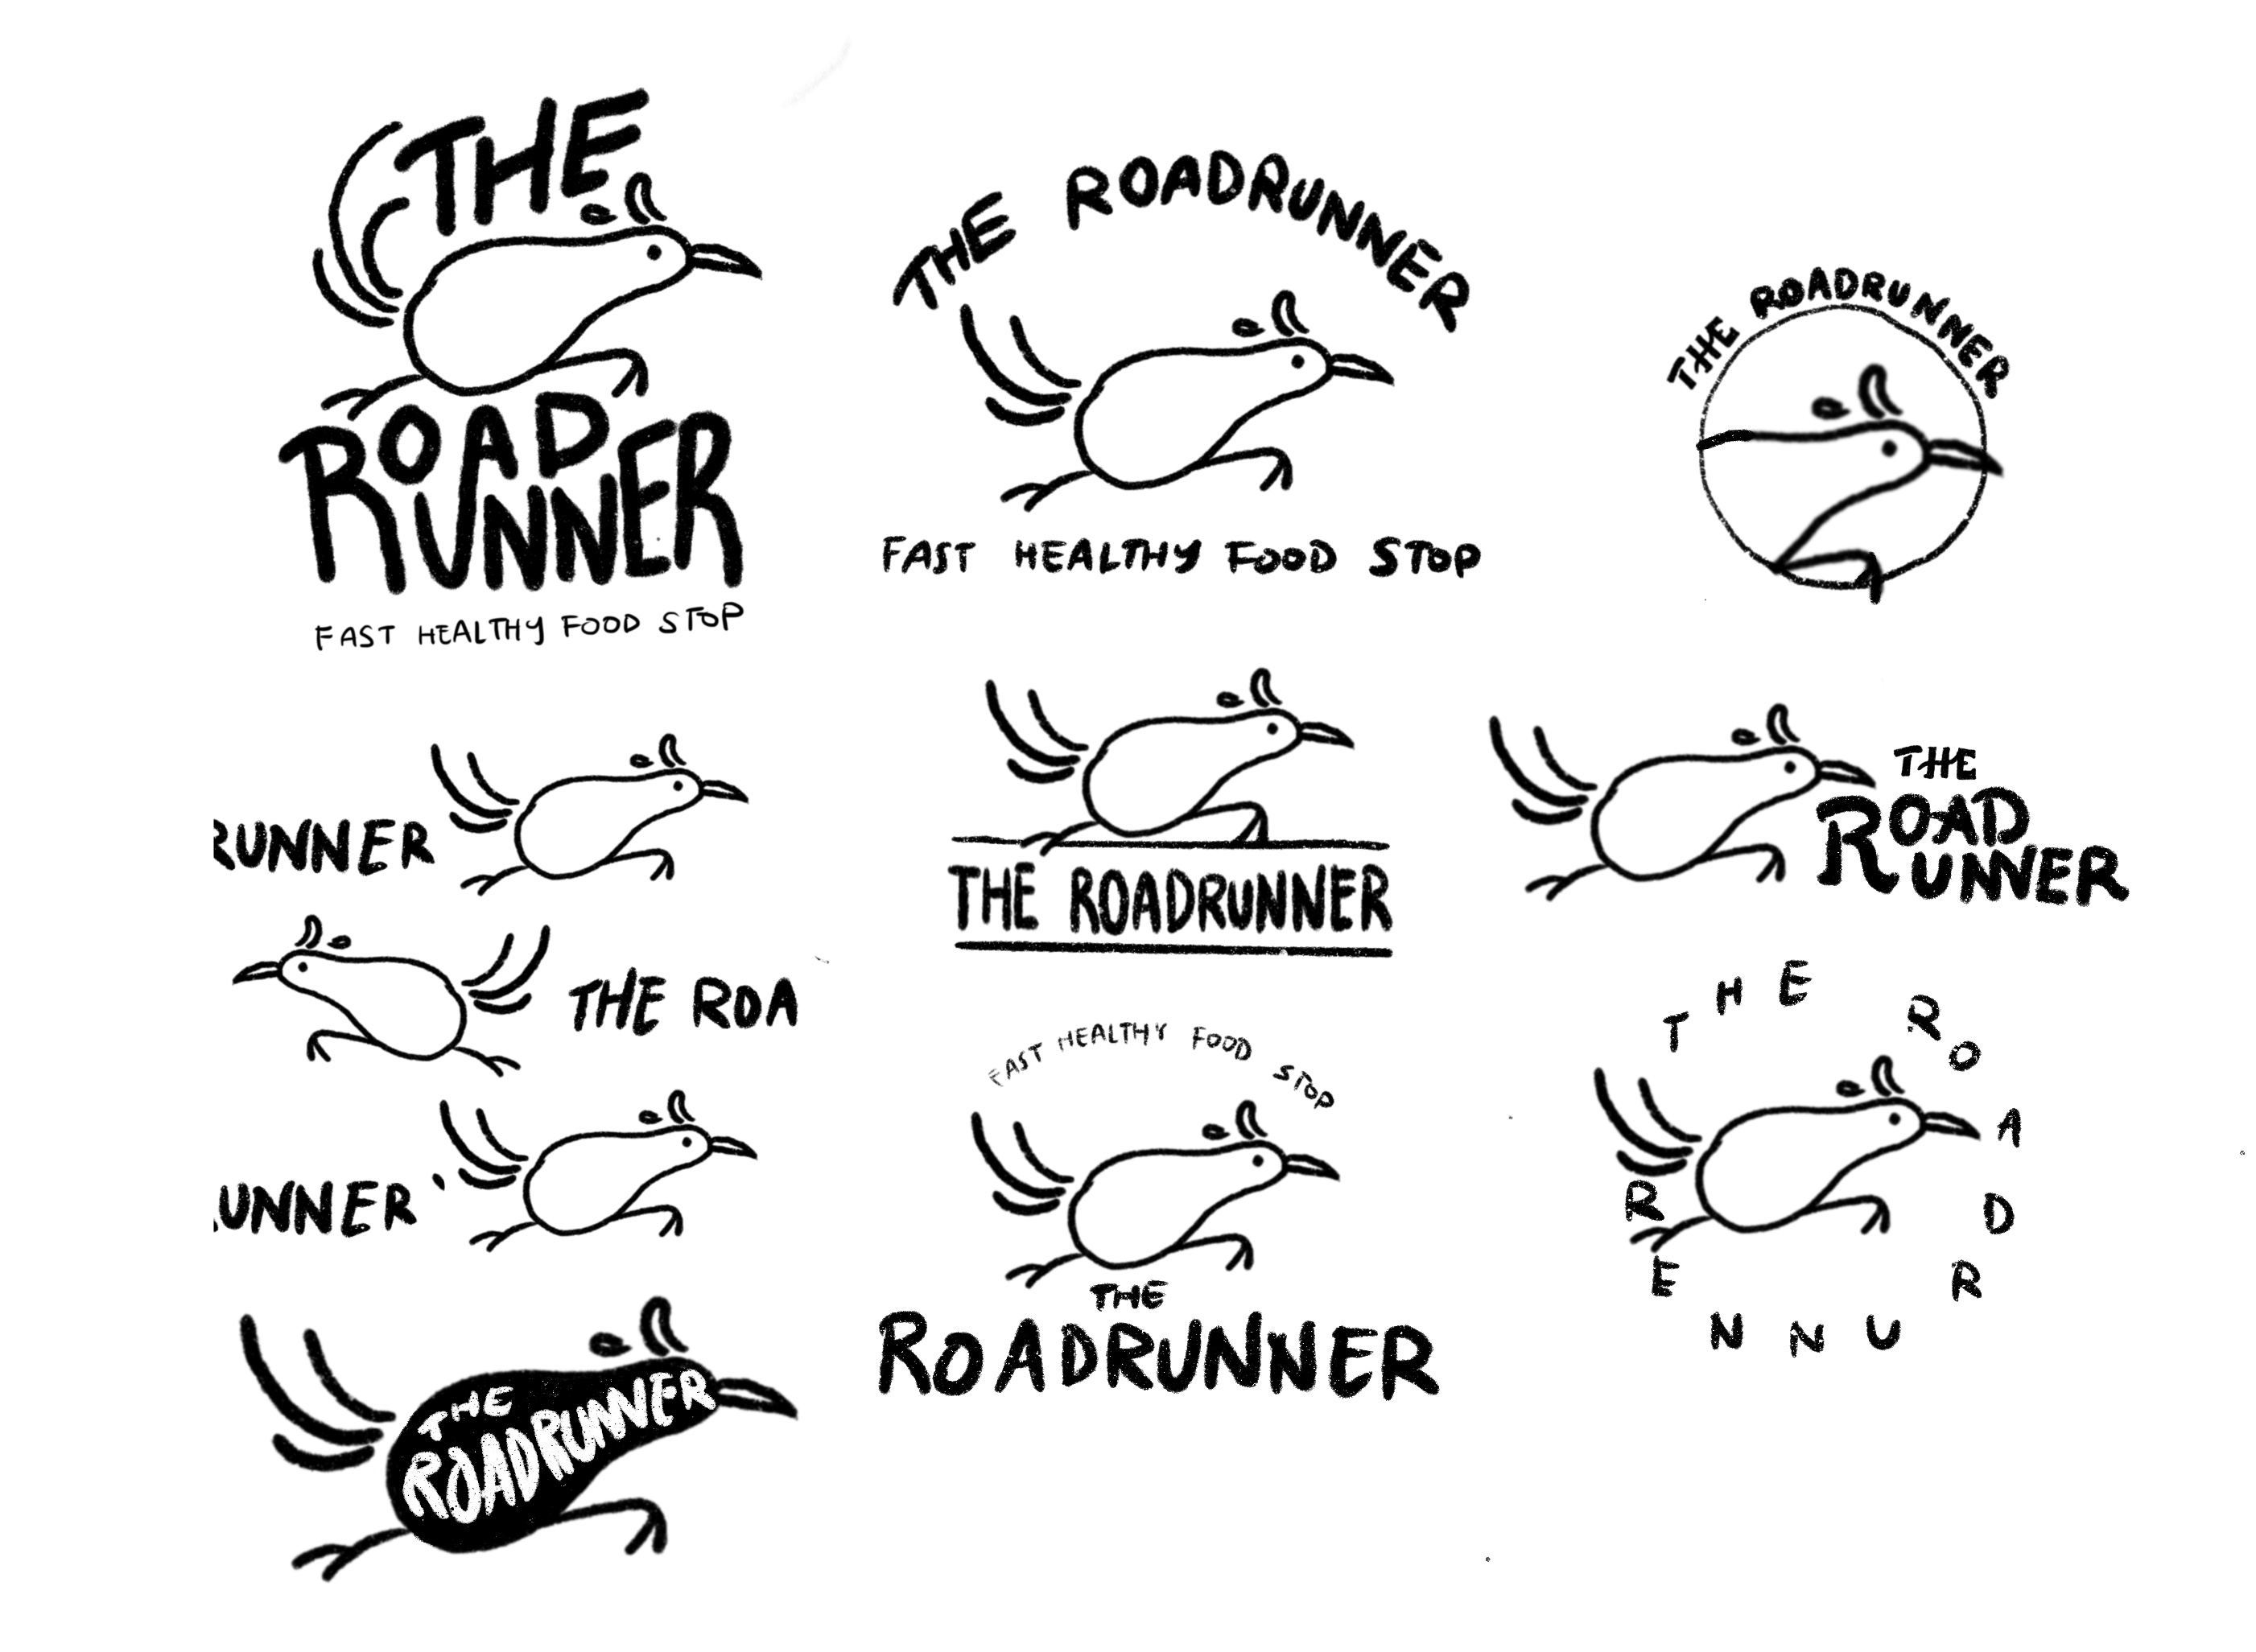 THE
ROAD
RUNNER
FAST HEALTHY FOOD STOP
THE ROADRUNNER
FAST HEALTHY FOOD STOP
THE ROADRUNNER
RUNNER
THE ROA
UNNER
THE ROADRUNNER
THE
ROADRUNNER
THE
ROAD
RUNNER
FAST HEALTHY FOOD STOP
THE
ROADRUNNER
THE ROADRUNNER